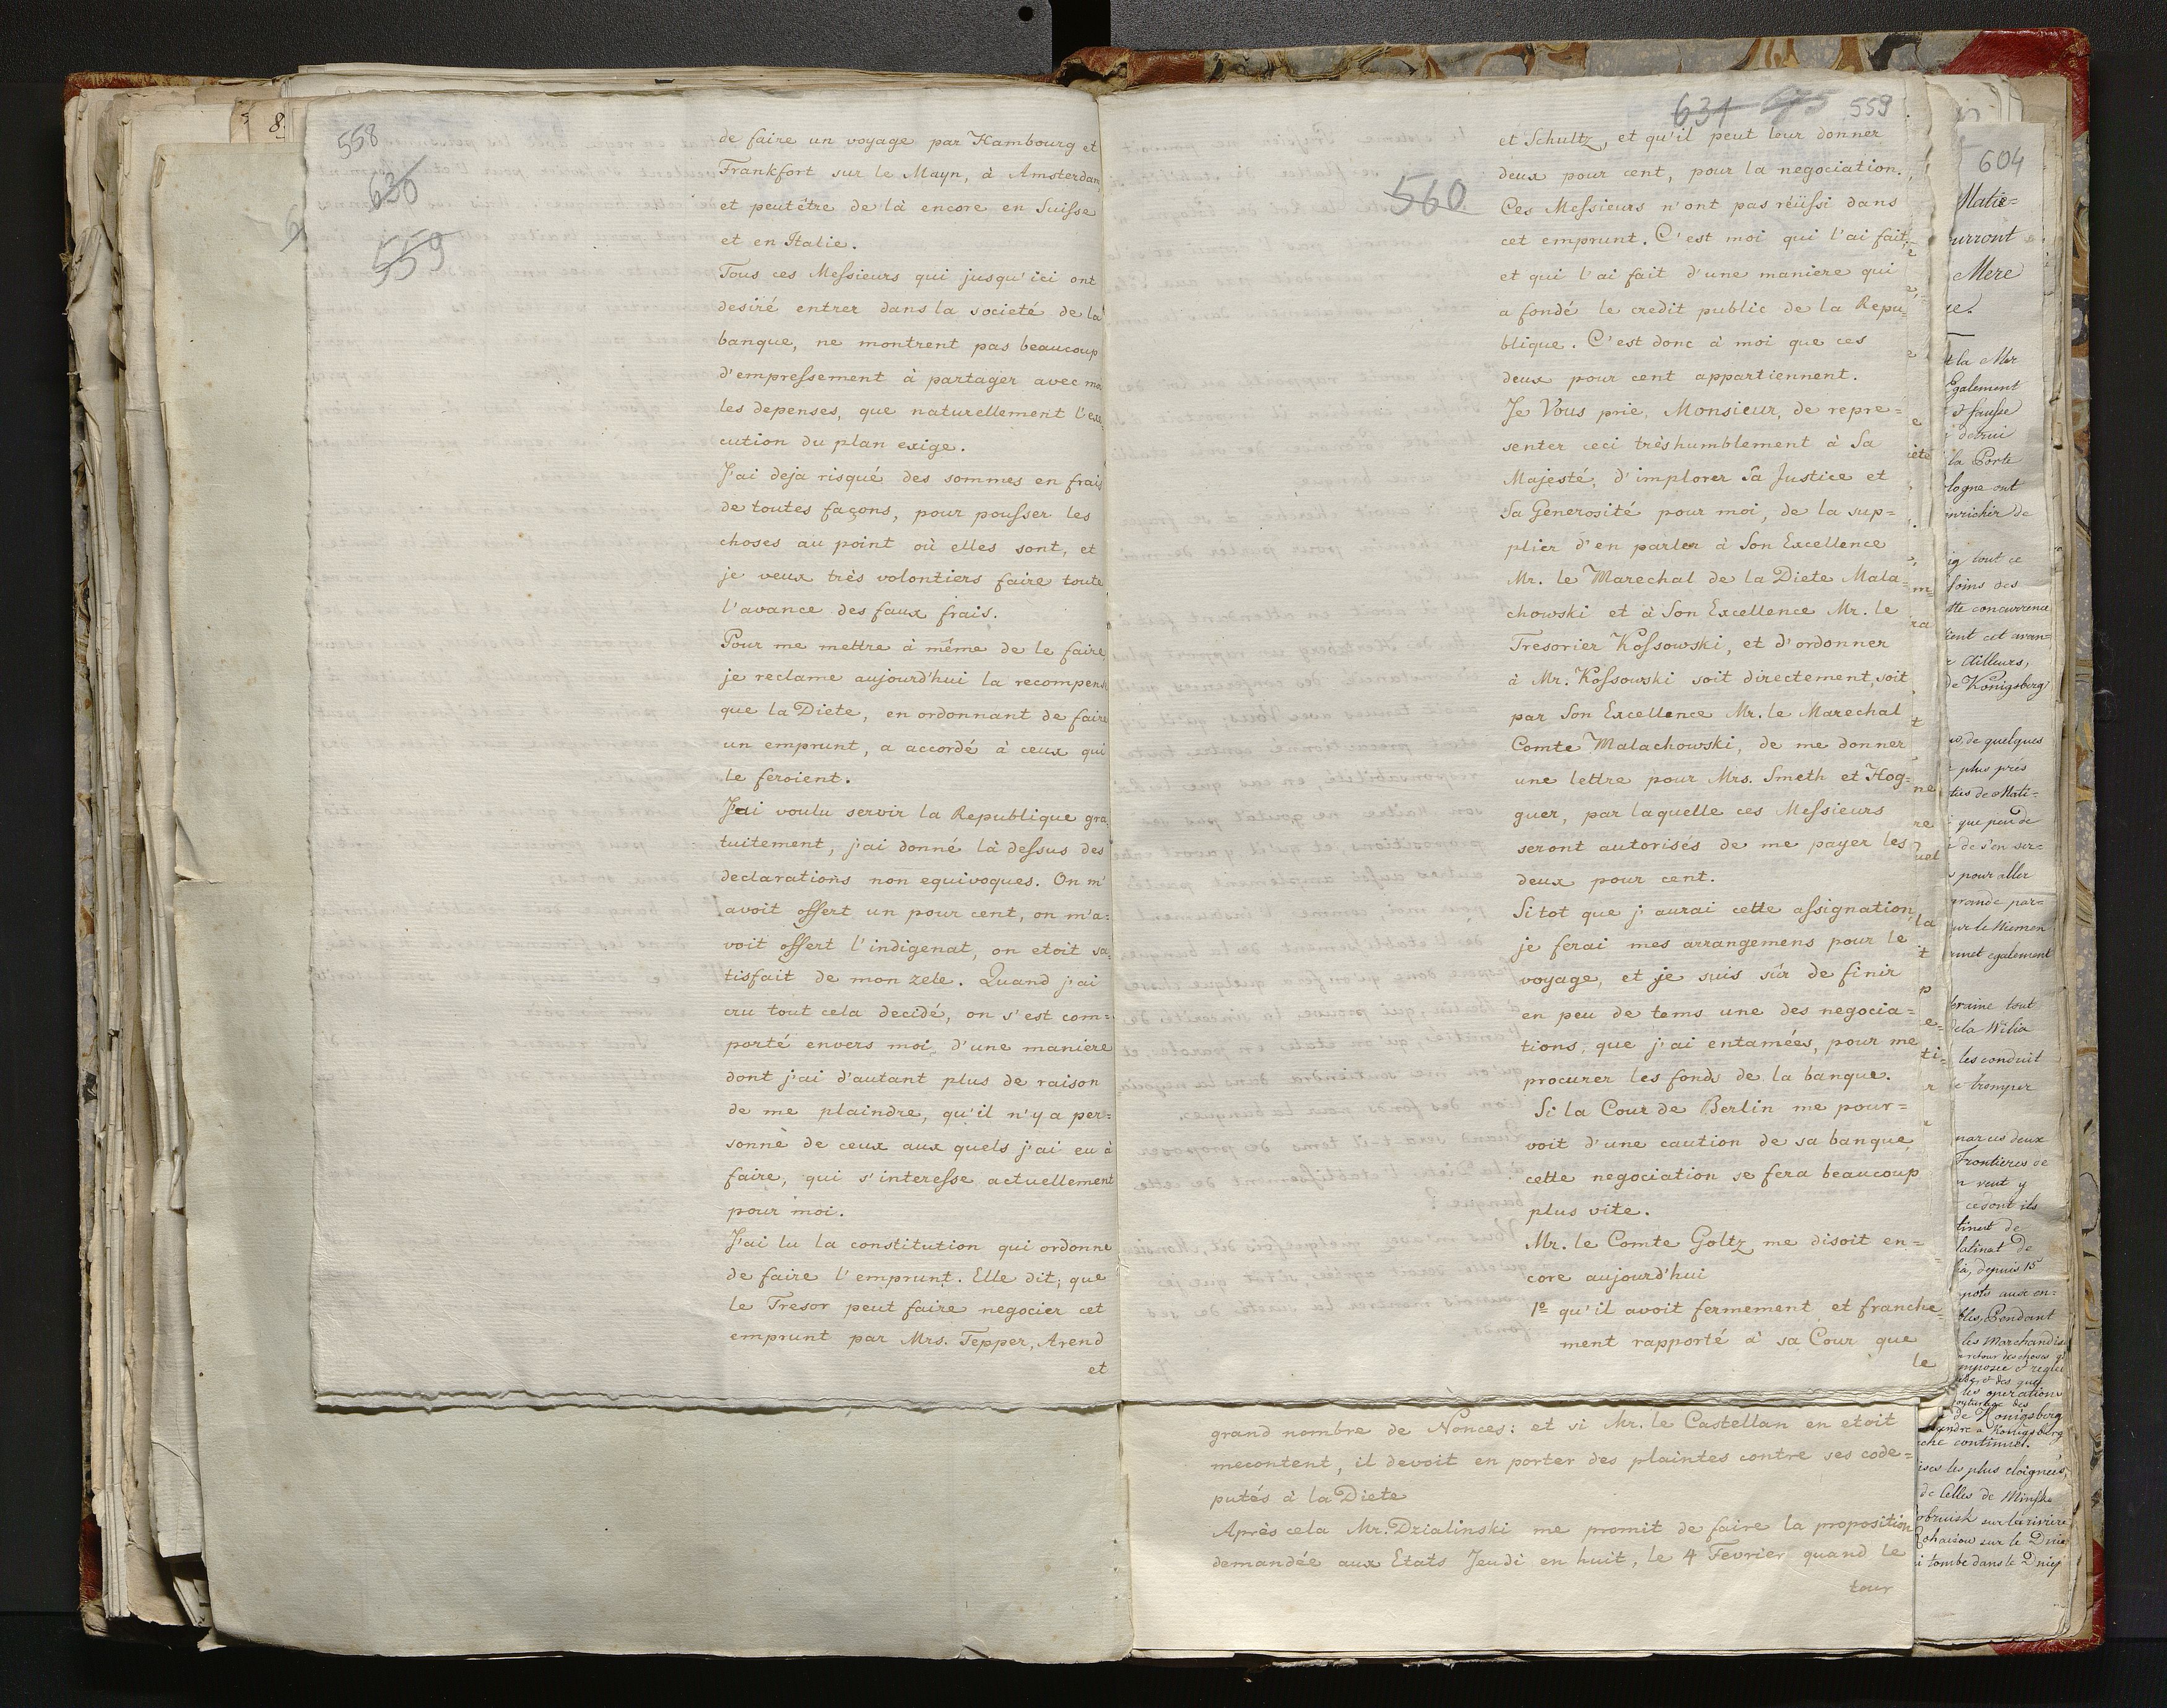 558
630
559
de faire un voyage par Hambourg et
Frankfort sur le Mayn, à Amsterdam,
et peutêtre de là encore en Suisse
et en Italie.
Tous ces Messieurs qui jusqu'ici ont
desiré entrer dans la societé de la
banque, ne montrent pas beaucoup
d'empressement à partager avec moi
les depenses, que naturellement l'exe-
cution du plan exige.
J'ai deja risqué des sommes en frais
de toutes façons, pour pousser les
choses au point où elles sont, et
je veux très volontiers faire toute
l'avance des faux frais.
Pour me mettre à même de le faire,
je reclame aujourd'hui la recompense
que la Diete, en ordonnant de faire
un emprunt, a accordé à ceux qui
le feroient.
J'ai voulu servir la Republique gra-
tuitement, j'ai donné là dessus des
declarations non equivoques. On m'
avoit offert un pour cent, on m'a=
voit offert l'indigenat, on etoit sa=
tisfait de mon zele. Quand j'ai
cru tout cela decidé, on s'est com=
porté envers moi, d'une maniere
dont j'ai d'autant plus de raison
de me plaindre, qu'il n'y a per=
sonne de ceux aux quels j'ai eu à
faire, qui s'interesse actuellement
pour moi.
J'ai lu la constitution qui ordonne
de faire l'emprunt. Elle dit, que
le Tresor peut faire negocier cet
emprunt par Mrs. Tepper, Arend
et
631 675 559
560
et Schultz, et qu'il peut leur donner
deux pour cent, pour la negociation.
Ces Messieurs n'ont pas réüssi dans
cet emprunt. C'est moi qui l'ai fait,
et qui l'ai fait d'une maniere qui
a fondé le credit public de la Repu=
blique. C'est donc à moi que ces
deux pour cent appartiennent.
Je Vous prie, Monsieur, de repre=
senter ceci trèshumblement à Sa
Majesté, d'implorer Sa Justice et
Sa Génerosité pour moi, de la sup=
plier d'en parler à Son Excellence
Mr. le Marechal de la Diete Mala=
chowski et à Son Excellence Mr. le
Tresorier Kossowski, et d'ordonner
à Mr. Kossowski soit directement, soit
par Son Excellence Mr. le Marechal
Comte Malachowski, de me donner
une lettre pour Mrs. Smeth et Hog=
guer, par laquelle ces Messieurs
seront autorisés de me payer les
deux pour cent.
Sitot que j'aurai cette assignation,
je ferai mes arrangemens pour le
voyage, et je suis sûr de finir
en peu de tems une des negocia=
tions, que j'ai entamées, pour me
procurer les fonds de la banque.
Si la Cour de Berlin me pour=
voit d'une caution de sa banque,
cette negociation se fera beaucoup
plus vite.
Mr. le Comte Goltz me disoit en=
core aujourd'hui
1º qu'il avoit fermement et franche=
ment rapporté à sa Cour que
le
grand nombre de Nonces: et si Mr. le Castellan en etoit
mecontent, il devoit en porter des plaintes contre ses code=
putés à la Diete
Après cela Mr. Dzialinski me promit de faire la proposition
demandée aux Etats Jeudi en huit, le 4 Fevrier quand le
tour
604
Matie=
urront
Mere
t la Mer
Egalement
et fausse
la Porte
logne ont
enrichir de
tout ce
soins des
concurrence
cet avan=
Ailleurs,
de Königsberg
de quelques
plus près
ties de Mati=
que peu de
de s'en ser=
pour aller
grande par=
sur le Niemen
egalement
tout
de la Wilia
les conduit
tromper
par ces deux
Frontieres de
veut y
ce dont ils
depuis 15
Pendant
les Marchandis
les operations
de Konigsberg
continues.
les plus eloignees,
de Celles de Minsk
sur la riviere
sur le Dniep
tombe dans le Dniep